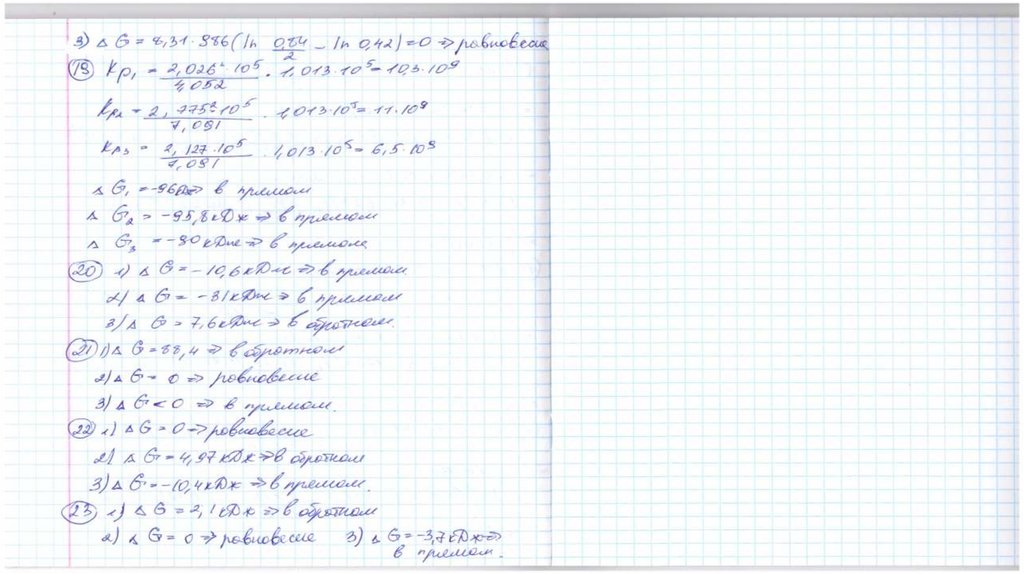 3) Δ G = 8,31·986(ln 0,84/2 - ln 0,42)=0 => равновесие
19 Kp₁ = 2,026²·10⁵/4,052 · 1,013·10⁵ = 10,3·10⁹
Kp₂ = 2,775²·10⁵/7,091 · 1,013·10⁵ = 11·10⁹
Kp₃ = 2,127·10⁵/7,091 · 1,013·10⁵ = 6,5·10⁹
Δ G₁ = -96 => в прямом
Δ G₂ = -95,8 кДж => в прямом
Δ G₃ = -90 кДж => в прямом
20 1) Δ G = -10,6 кДж => в прямом
2) Δ G = -31 кДж => в прямом
3) Δ G = 7,6 кДж => в обратном.
21 1) Δ G = 88,4 => в обратном
2) Δ G = 0 => равновесие
3) Δ G < 0 => в прямом.
22 1) Δ G = 0 => равновесие
2) Δ G = 4,97 кДж => в обратном
3) Δ G = -10,4 кДж => в прямом.
23 1) Δ G = 2,1 кДж => в обратном
2) Δ G = 0 => равновесие 3) Δ G = -3,7 кДж =>
в прямом.